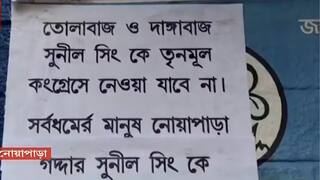 তোলাবাজ ও দাঙ্গাবাজ
সুনীল সিং কে তৃনমূল
কংগ্রেসে নেওয়া যাবে না।
সর্বধর্মের্র মানুষ নোয়াপাড়া
গদ্দার সুনীল সিং কে
নোয়াপাড়া